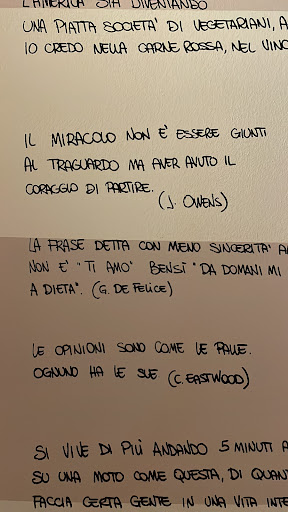 L'AMERICA STA DIVENTANDO
UNA PIATTA SOCIETA' DI VEGETARIANI,
IO CREDO NELLA CARNE ROSSA, NEL VINO
IL MIRACOLO NON E' ESSERE GIUNTI
AL TRAGUARDO MA AVER AVUTO IL
CORAGGIO DI PARTIRE.
(J. OWENS)
LA FRASE DETTA CON MENO SINCERITA'
NON E' "TI AMO" BENSI "DA DOMANI MI
A DIETA". (G. DE FELICE)
LE OPINIONI SONO COME LE PALLE.
OGNUNO HA LE SUE (C. EASTWOOD)
SI VIVE DI PIÙ ANDANDO 5 MINUTI A
SU UNA MOTO COME QUESTA, DI QUAN
FACCIA CERTA GENTE IN UNA VITA INTE